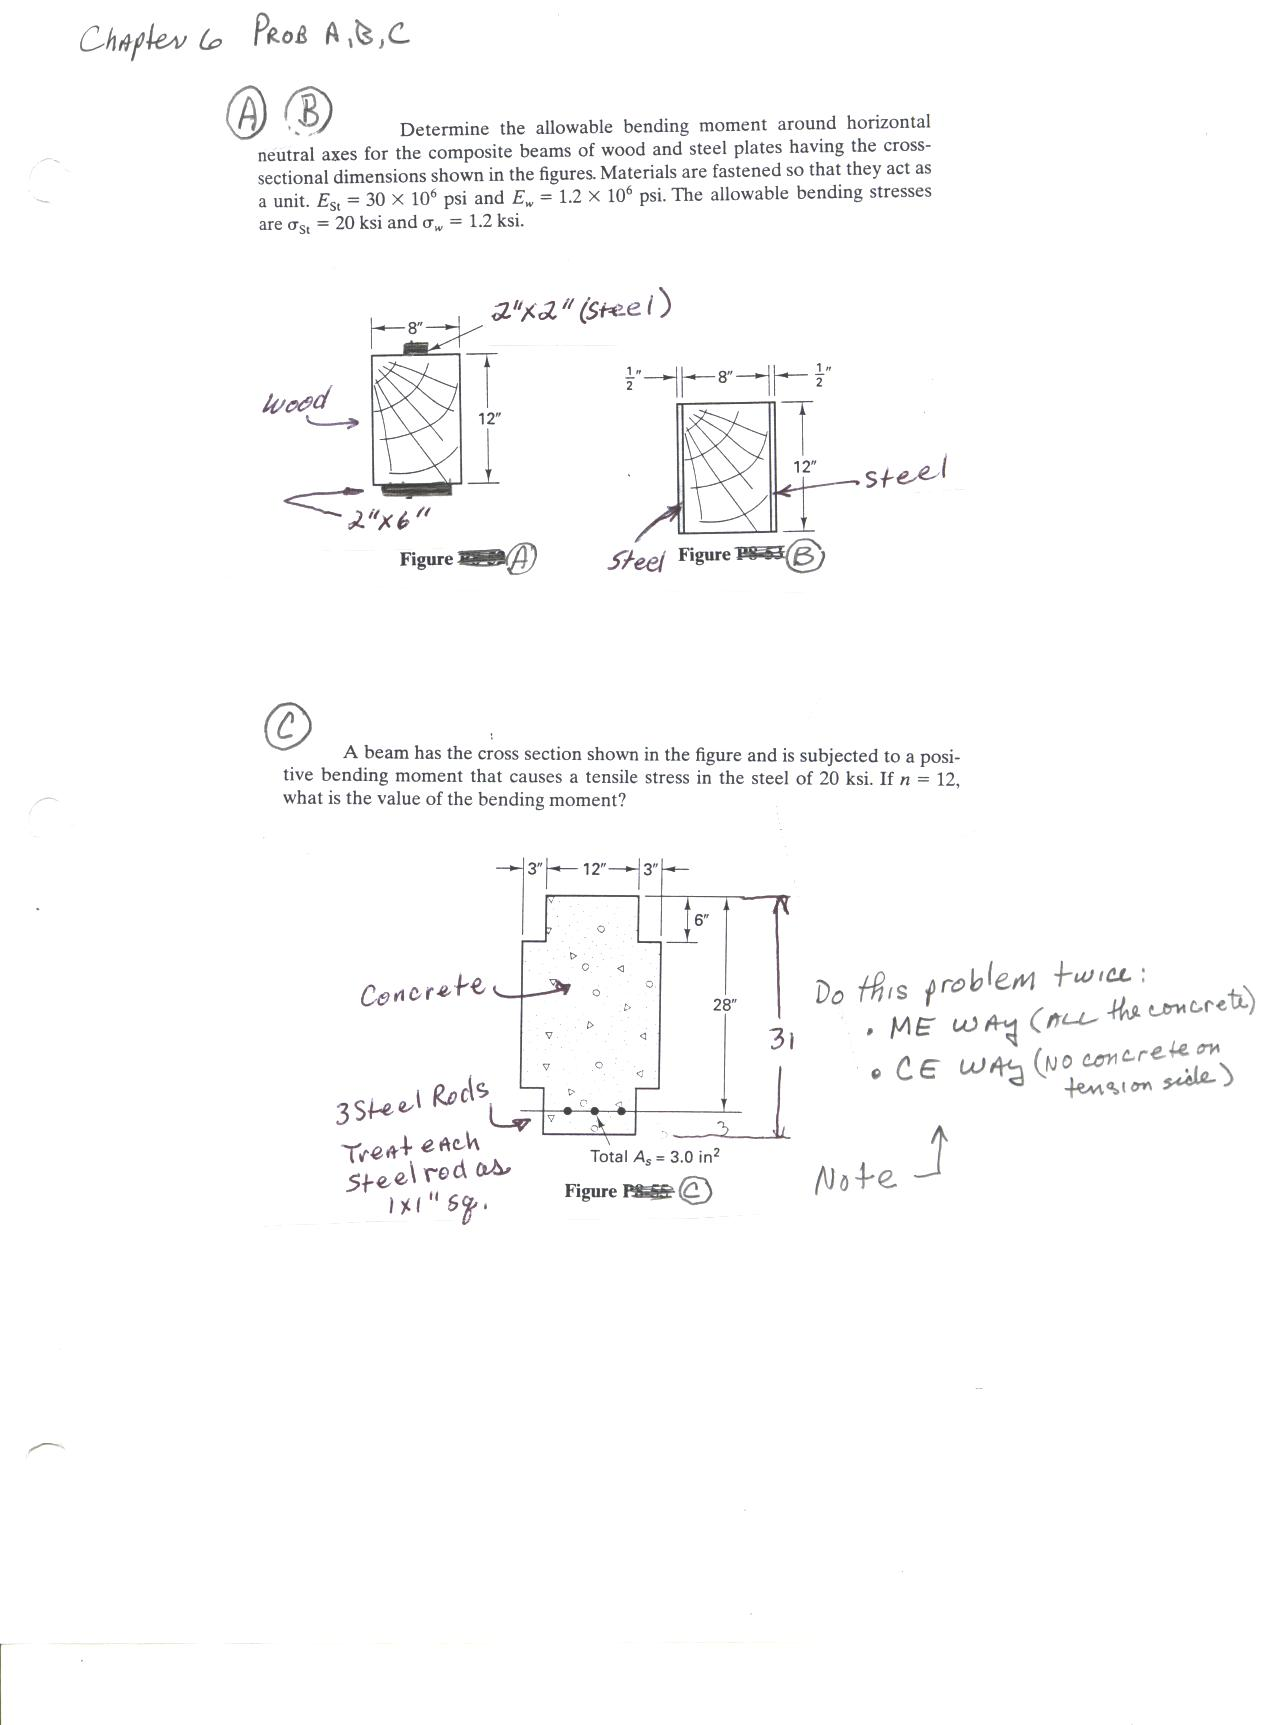 Chapter 6 PROB A,B,C
A B
Determine the allowable bending moment around horizontal
neutral axes for the composite beams of wood and steel plates having the cross-
sectional dimensions shown in the figures. Materials are fastened so that they act as
a unit. E_St = 30 × 10⁶ psi and E_w = 1.2 × 10⁶ psi. The allowable bending stresses
are σ_St = 20 ksi and σ_w = 1.2 ksi.
2"x2" (steel)
8"
wood
12"
2"x6"
Figure A
1/2" 8" 1/2"
12"
steel
Steel
Figure P8-53 B
C
A beam has the cross section shown in the figure and is subjected to a posi-
tive bending moment that causes a tensile stress in the steel of 20 ksi. If n = 12,
what is the value of the bending moment?
3" 12" 3"
6"
28"
31
3
Concrete
3 Steel Rods
Treat each
steel rod as
1x1" sq.
Total A_s = 3.0 in²
Figure P8-55 C
Do this problem twice:
• ME WAY (ALL the concrete)
• CE WAY (NO concrete on
tension side)
Note